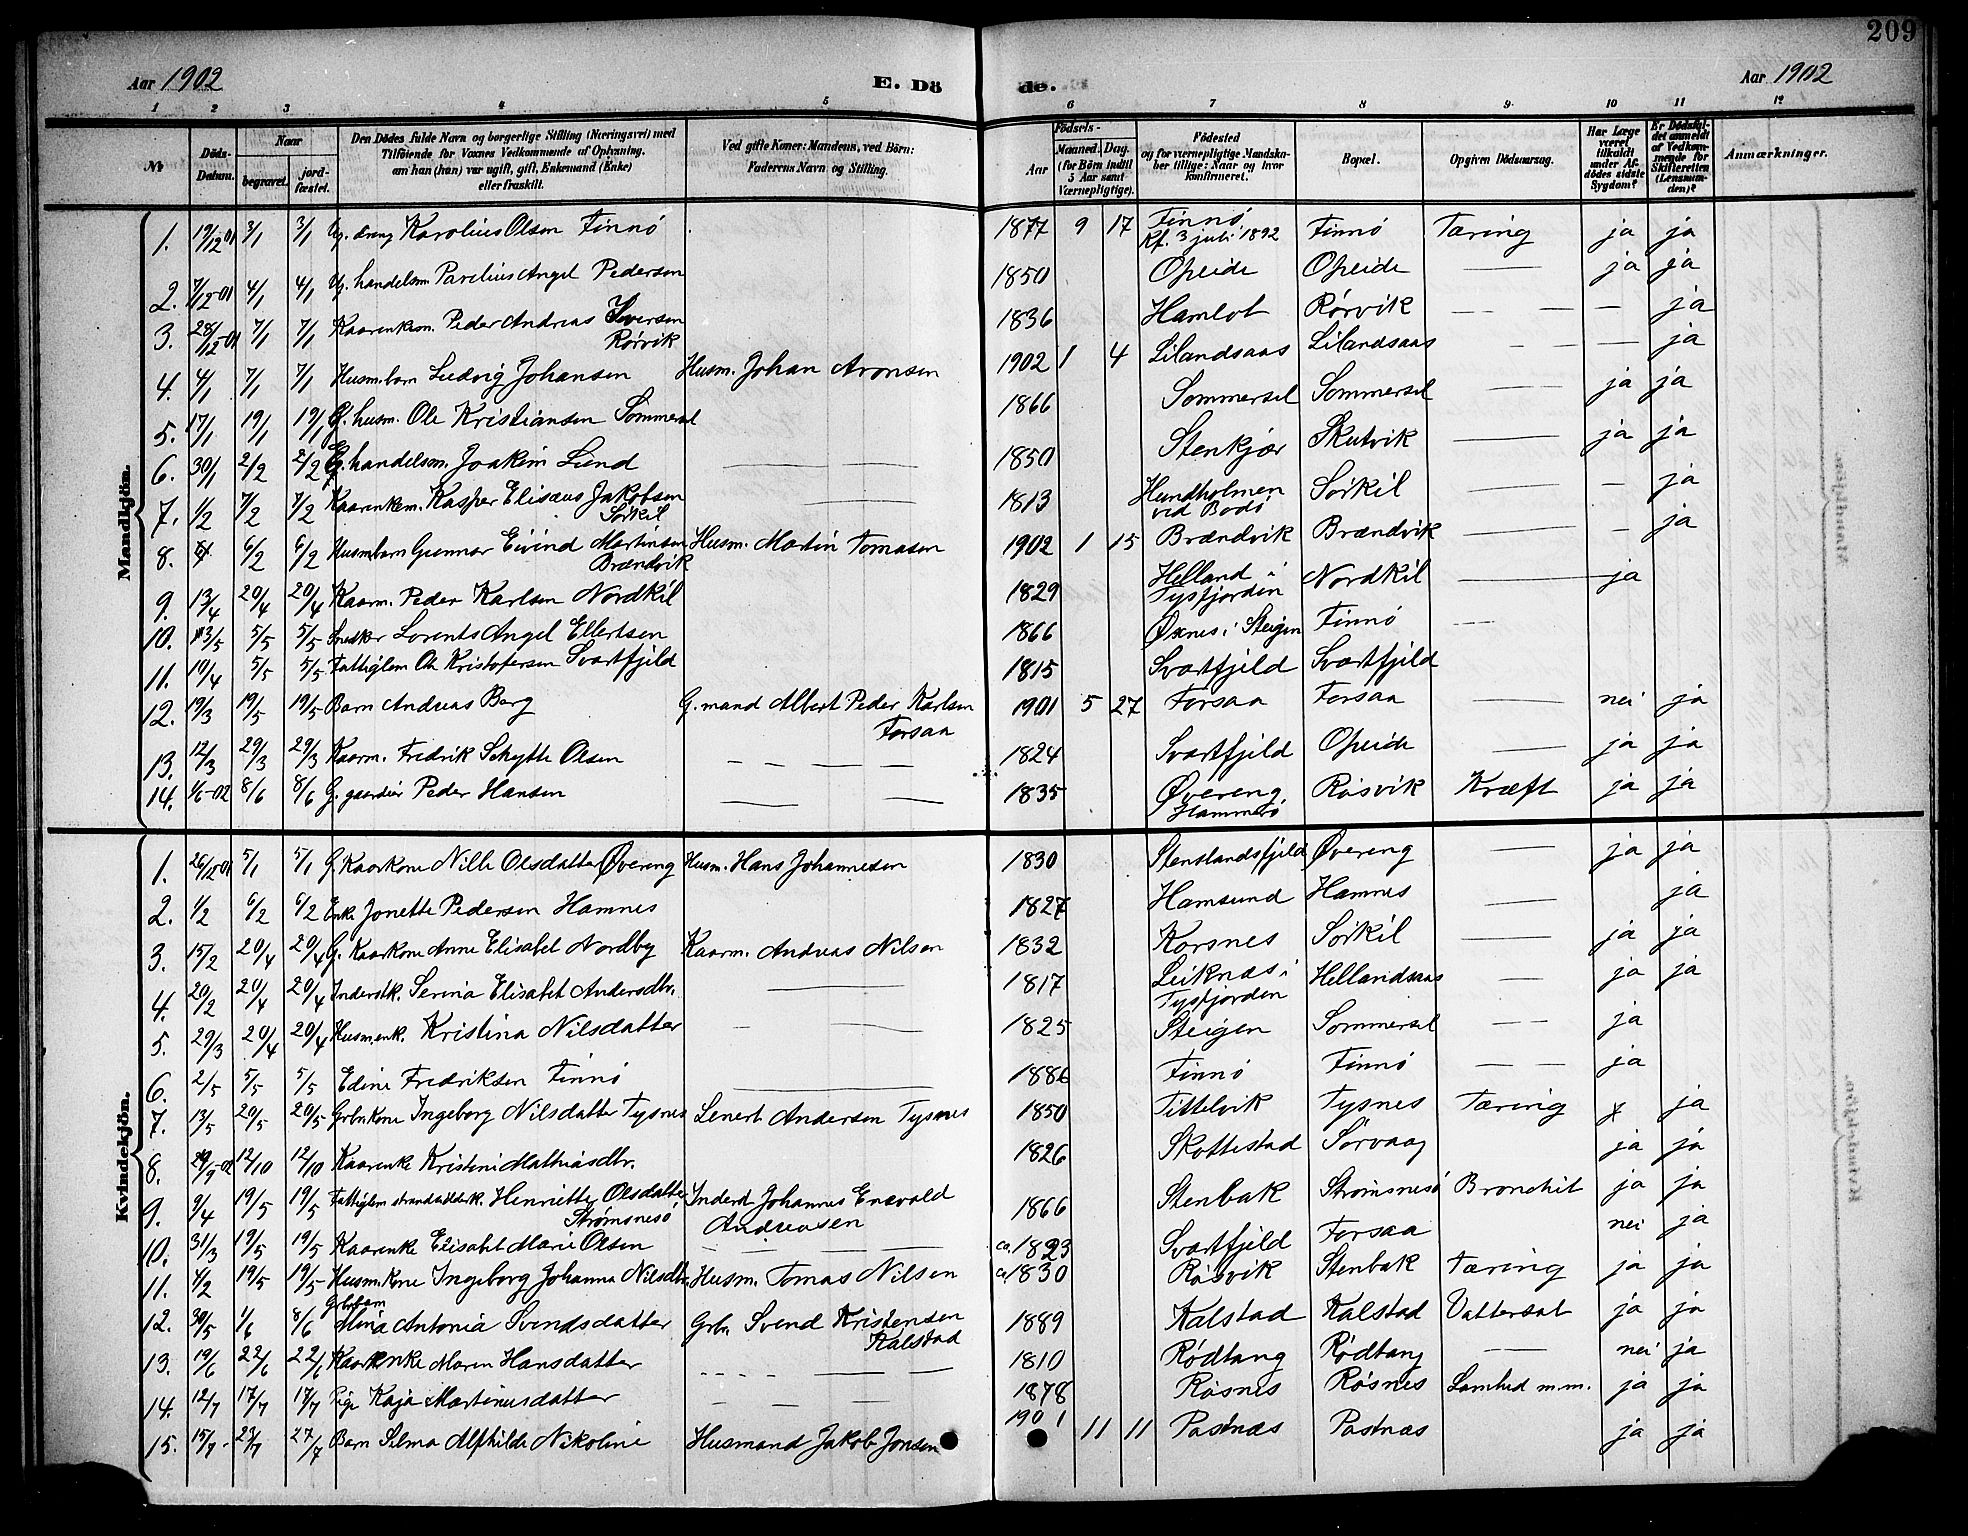 209
Aar 1902 E. Dö de. Aar 1902
1 2 3 4 5 6 7 8 9 10 11 12
№ Döds-Datum. Naar begravet. jordfæstet. Den Dödes fulde Navn og borgerlige Stilling (Næringsvei) med Tilföiende for Voxnes Vedkommende af Oplysning, om han (hun) var ugift, gift, Enkemand (Enke) eller fraskilt. Ved gifte Koner: Mandens, ved Börn: Faderens Navn og Stilling. Födsels- Aar Maaned. Dag. (for Börn indtil 5 Aar samt Værnepligtige). Födested og for værnepligtige Mandskaber tillige: Naar og hvor konfirmeret. Bopæl. Opgiven Dödsaarsag. Har Læge været tilkaldt under Afdödes sidste Sygdom? Er Dödsfaldet anmeldt af Vedkommende for Skifteretten (Lensmanden)? Anmærkninger.
Mandkjön.
1. 19/12-01 3/1 3/1 Ug. dreng Karolius Olsen Finnö 1877 9 17 Finnö Kf. 3 juli 1892 Finnö Tæring ja ja
2. 7/12-01 4/1 4/1 Ug. handelsm. Parelius Angel Pedersen 1850 Opeide Opeide — ja ja
3. 28/12-01 7/1 7/1 Kaarenkem. Peder Andreas Iversen Rörvik 1836 Hamlot Rörvik — — ja
4. 4/1 7/1 7/1 Husm.barn Ludvig Johansen Husm. Johan Aronsen 1902 1 4 Lilandsaas Lilandsaas — — ja
5. 17/1 19/1 19/1 G. husm. Ole Kristiansen Sommersel 1866 Sommersel Sommersel — ja ja
6. 30/1 2/2 2/2 G. handelsm. Joakim Lund — — 1850 Stenkjær Skutvik — ja ja
7. 1/2 7/2 7/2 Kaarenkem. Kasper Elisæus Jakobsen Sörkil — — 1813 Hundholmen ved Bodö Sörkil — — ja
8. 6/2 6/2 Husmbarn Gunnar Eivind Martinsen Brændvik Husm. Martin Tomasen 1902 1 15 Brændvik Brændvik — — ja
9. 13/4 20/4 20/4 Kaarm. Peder Karlsen Nordkil 1829 Helland i Tysfjorden Nordkil — ja
10. 3/5 5/5 5/5 Snedker Lorents Angel Ellertsen 1866 Øxnes i Steigen Finnö —
11. 19/4 5/5 5/5 Fattiglem Ole Kristofersen Svartfjeld 1815 Svartfjeld Svartfjeld
12. 19/3 19/5 19/5 Barn Andreas Berg G. mand Albert Peder Karlsen Forsaa 1901 5 27 Forsaa Forsaa — nei ja
13. 12/3 29/3 29/3 Kaarm. Fredrik Schytte Olsen — — — — 1824 Svartfjeld Opeide — ja ja
14. 1/6-02 8/6 8/6 G. gaardeier Peder Hansen — — — 1835 Øvereng Hammerö Rösvik Kræft ja ja
Kvindekjön.
1. 26/12-01 5/1 5/1 G. Kaarkone Nille Olsdatter Øvereng Husm. Hans Johannesen 1830 Stenslandsfjeld Øvereng — ja ja
2. 1/2 6/2 6/2 Enke Jonette Pedersen Hamnes 1827 Hamsund Hamnes — ja
3. 15/2 20/4 20/4 G. Kaarkone Anne Elisabet Nordby Kaarm. Andreas Nilsen 1832 Korsnes Sörkil — ja ja
4. 20/2 20/4 20/4 Inderstk. Serina Elisabet Andersdtr. — — 1817 Leiknæs i Tysfjorden Hellandsaas — ja ja
5. 29/3 20/4 20/4 Husm.enk. Kristina Nilsdatter — — — 1825 Steigen Sommersel — — ja
6. 2/5 5/5 5/5 Edine Fredriksen Finnö — — 1886 Finnö Finnö — — ja
7. 13/5 20/5 20/5 Grbr.kone Ingeborg Nilsdatter Tysnes Lenert Andersen Tysnes 1850 Tittelvik Tysnes Tæring x ja
8. 29/9-02 12/10 12/10 Kaarenke Kristine Mathiasdtr. 1826 Skottestad Sörvaag ja ja
9. 9/4 19/5 19/5 Fattiglem Henriette Olsdatter Strömsnesö Inderst Johannes Enevold Andreasen 1866 Stenbak Strömsnesö Bronchit ja ja
10. 31/3 19/5 19/5 Kaarenke Elisabet Marie Olsen — — — — ca. 1823 Svartfjeld Forsaa nei ja
11. 4/2 19/5 19/5 Husm.kone Ingeborg Johanna Nilsdtr. Husm. Tomas Nilsen ca. 1830 Rösvik Stenbak Tæring ja ja
12. 30/5 1/6 8/6 Grbr.barn Mina Antonia Svendsdatter Grbr. Svend Kristensen Kalstad 1889 Kalstad Kalstad Vattersot ja ja
13. 19/6 22/6 22/6 Kaarenke Maren Hansdatter — — — — 1810 Rödtang Rödtang — nei ja
14. 12/7 17/7 17/7 Pige Kaja Martinusdatter — — — 1878 Rösnes Rösnes Lamhed m.m. ja ja
15. 15/7 27/7 27/7 Barn Selma Alfhilde Nikoline Husmand Jakob Jonsen 1901 11 11 Pastnæs Pastnæs ja ja